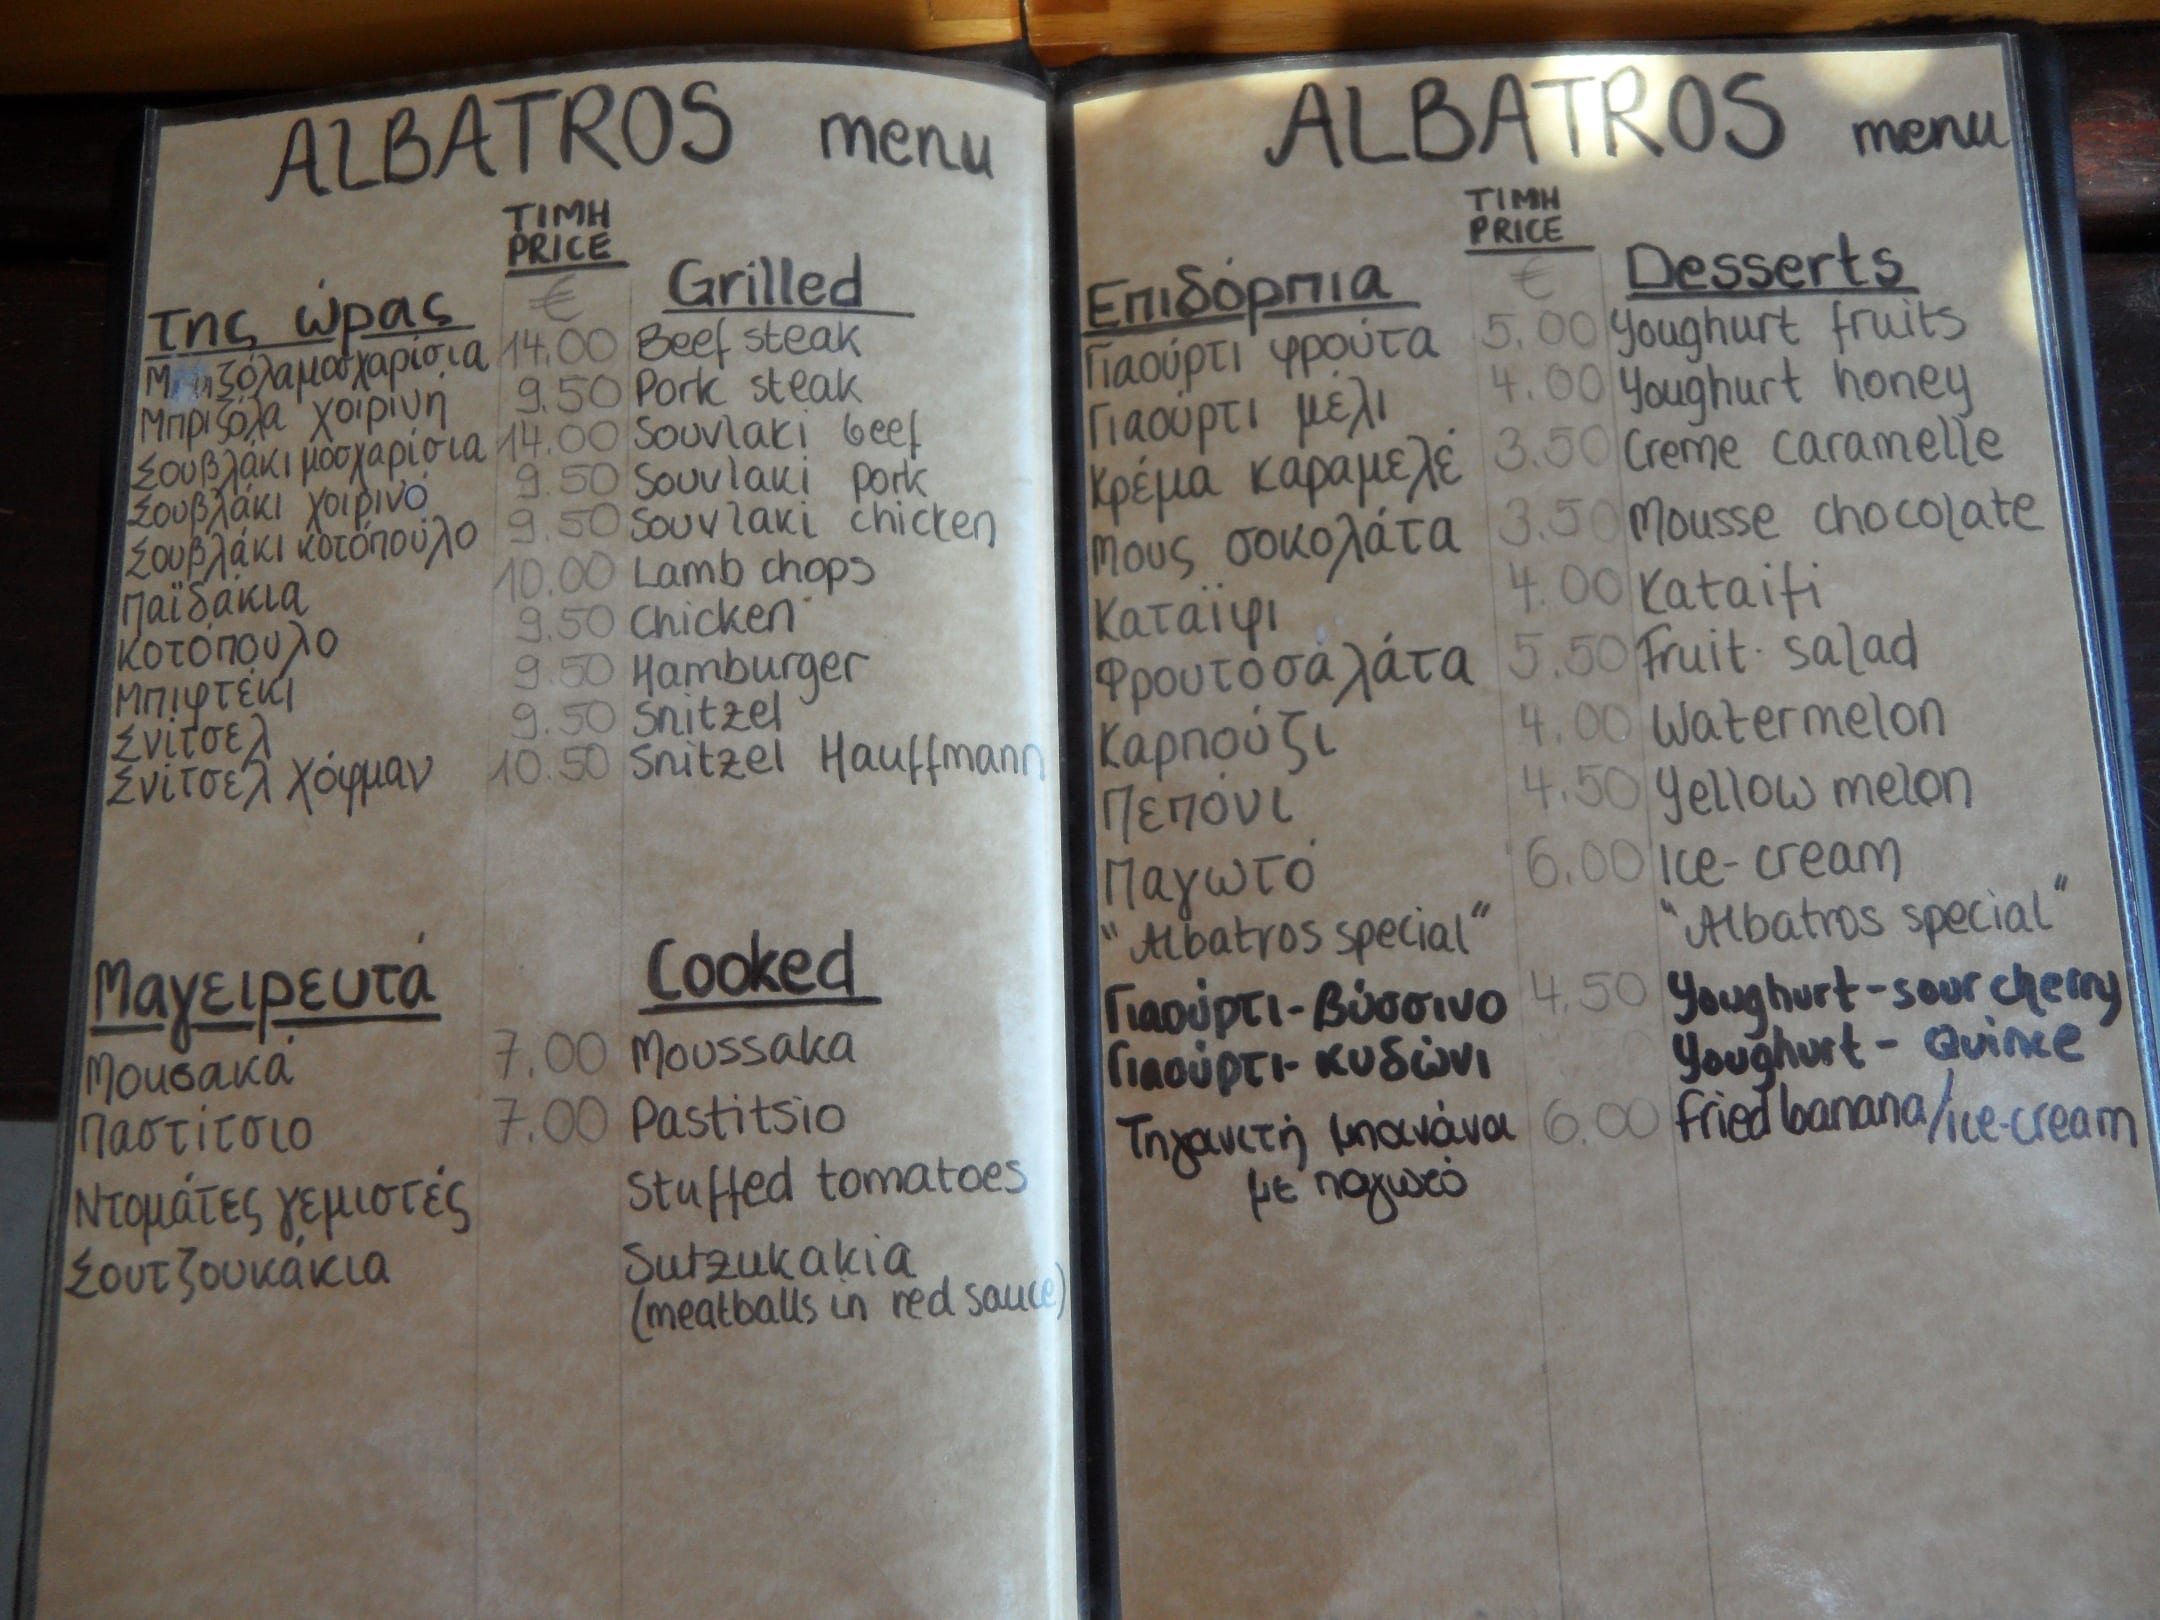 ALBATROS menu
ΤΙΜΗ
PRICE
Της ώρας € Grilled
Μπριζόλα μοσχαρίσια 14.00 Beef steak
Μπριζόλα χοιρινή 9.50 Pork steak
Σουβλάκι μοσχαρίσια 14.00 Souvlaki beef
Σουβλάκι χοιρινό 9.50 Souvlaki pork
Σουβλάκι κοτόπουλο 9.50 Souvlaki chicken
Παϊδάκια 10.00 Lamb chops
Κοτόπουλο 9.50 Chicken
Μπιφτέκι 9.50 Hamburger
Σνίτσελ 9.50 Snitzel
Σνίτσελ Χόφμαν 10.50 Snitzel Hauffmann
Μαγειρευτά Cooked
Μουσακά 7.00 Moussaka
Παστίτσιο 7.00 Pastitsio
Ντομάτες γεμιστές Stuffed tomatoes
Σουτζουκάκια Sutzukakia
(meatballs in red sauce)
ALBATROS menu
ΤΙΜΗ
PRICE
Επιδόρπια € Desserts
Γιαούρτι φρούτα 5.00 Youghurt fruits
Γιαούρτι μέλι 4.00 Youghurt honey
Κρέμα καραμελέ 3.50 Creme caramelle
Μους σοκολάτα 3.50 Mousse chocolate
Καταϊφι 4.00 Kataifi
Φρουτοσαλάτα 5.50 Fruit salad
Καρπούζι 4.00 Watermelon
Πεπόνι 4.50 Yellow melon
Παγωτό 6.00 Ice-cream
"Albatros special" "Albatros special"
Γιαούρτι-Βύσσινο 4.50 Youghurt-sour cherry
Γιαούρτι-κυδώνι Youghurt-Quince
Τηγανιτή μπανάνα 6.00 Fried banana/ice-cream
με παγωτό